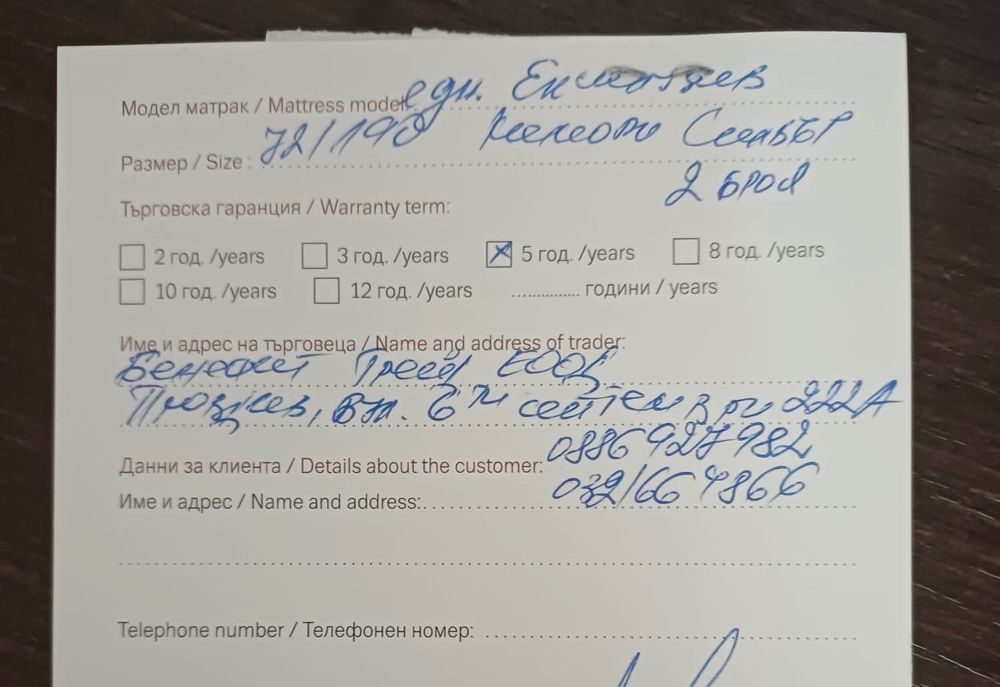 Модел матрак / Mattress model: едн. Ексклузив
Размер / Size : 72/190 Мемори Силвър
2 броя
Търговска гаранция / Warranty term:
2 год. /years 3 год. /years 5 год. /years 8 год. /years
10 год. /years 12 год. /years .............. години / years
Име и адрес на търговеца / Name and address of trader:
Бенефит Трейд ЕООД
Пловдив, бул. 6ти септември 222А
0886 927 982
Данни за клиента / Details about the customer:
032/664866
Име и адрес / Name and address:
Telephone number / Телефонен номер: